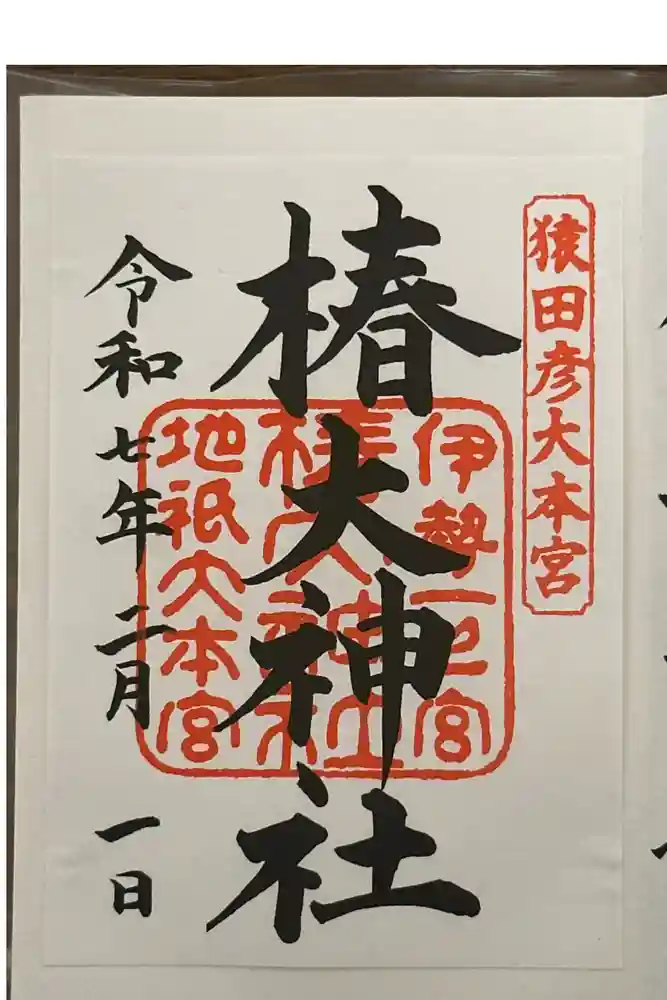 猿田彦大本宮
椿大神社
伊勢一宮
椿大神社
地祇大本宮
令和七年二月一日